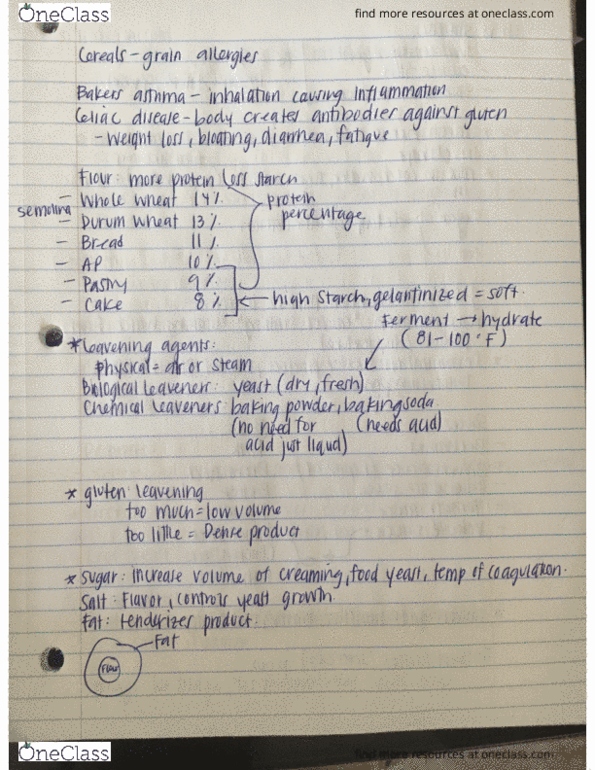 OneClass
find more resources at oneclass.com
Cereals - grain allergies
Bakers asthma - inhalation causing inflammation
Celiac disease - body creates antibodies against gluten
- weight loss, bloating, diarrhea, fatigue
Flour: more protein less starch
- Whole wheat 14%
protein percentage
semolina
- Durum wheat 13%
- Bread 11%
- AP 10%
- Pastry 9%
- Cake 8% ← high starch, gelantinized = soft.
Ferment → hydrate
(81-100°F)
* leavening agents:
physical = air or steam
Biological leaveners: yeast (dry, fresh)
Chemical leaveners: baking powder, baking soda
(no need for acid just liquid) (needs acid)
* gluten leavening
too much = low volume
too little = Dense product
* Sugar: Increase volume of creaming, food yeast, temp of coagulation.
Salt: Flavor, controls yeast growth
Fat: tenderizes product.
Fat
Flour
OneClass
find more resources at oneclass.com